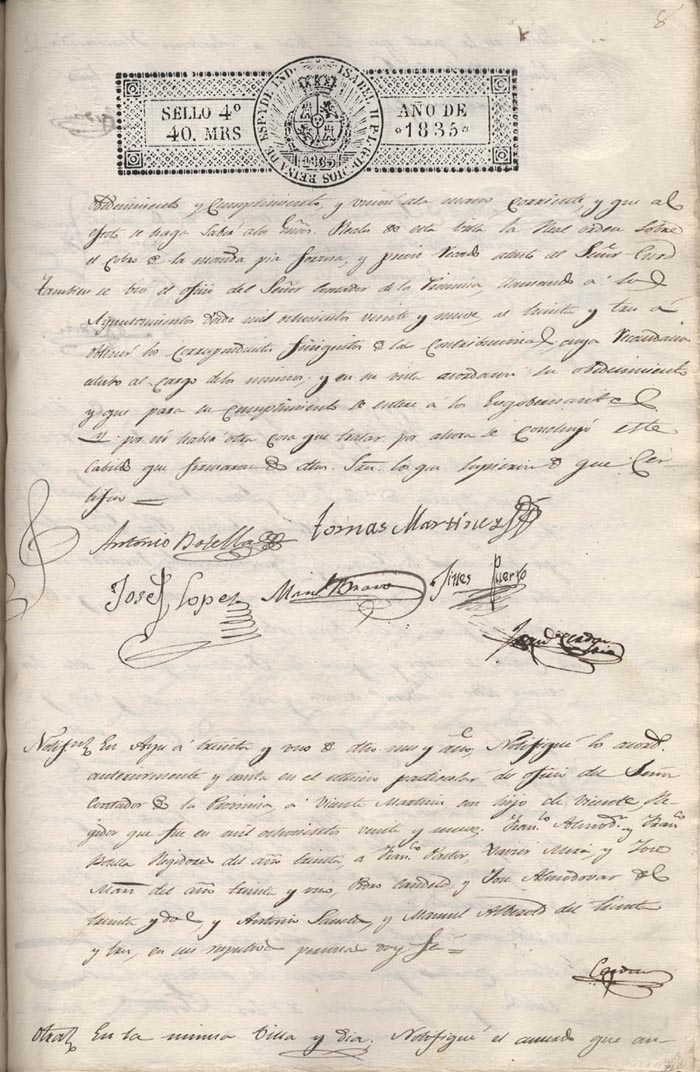 8
SELLO 4º
40. MRS
ISABEL II P.L.G.D. DIOS REINA DE ESP. Y DE IND.
1835
AÑO DE
1835
obedecimiento y cumplimiento, y union corriente, y que al
efecto se haga saber a los la Real orden sobre
el cobro de la manda pia forzosa, y
Tambien se bió el oficio del Señor Contador de la Provincia, llamando a los
Ayuntamientos desde mil ochocientos veinte y nueve, al treinta y tres á
obtener los correspondientes finiquitos de las Contribuciones cuya Recaudacion
estubo al cargo de los mismos; y en su vista acordaron su obedecimiento
y que para su cumplimiento se entere á los
Y por no haber otra cosa que tratar por ahora se concluyó este
Cabildo que firmaron de dhos. Sres. los que supieron de que Cer-
tifico =
Antonio Botella
Tomas Martinez
Josef Lopez
Manl. Bravo
Jines Puerto
Notifn. En á treinta y uno de dhos mes y año, Notifiqué lo acord.
anteriormente y consta en el ultimo particular del oficio del Señor
Contador de la Provincia, á Vicente Martinez hijo de Vicente, Re-
gidor que fue en mil ochocientos veinte y nueve: Franco. Almodr. y Franco.
Botella Regidores del año treinta, a Franco. Pastor, Xavier Mira, y Jose
Mari del año treinta y uno, Pedro Candela y Jose Almodovar del
treinta y dos, y Antonio y Manuel del treinta
y tres, en sus respectivas personas doy fe =
Otra En la misma Villa y dia: Notifiqué el acuerdo que an-